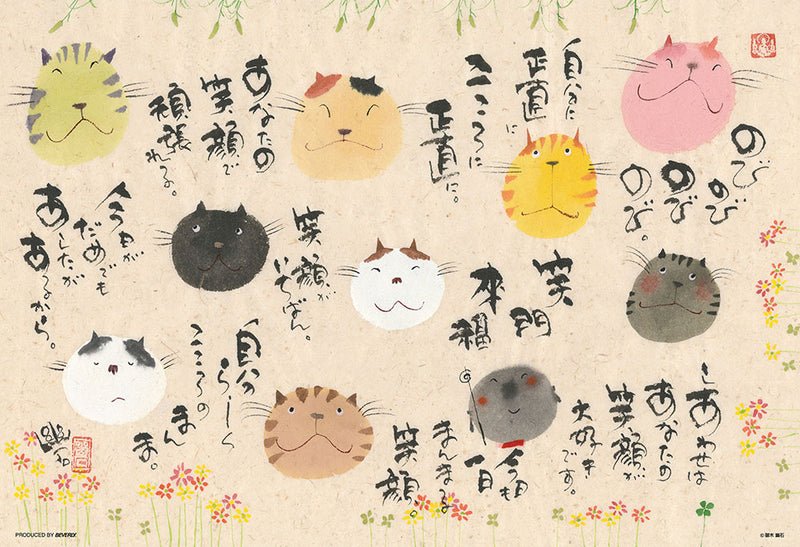 のび
のび
のび
のび。
自分に
正直に
こころに
正直に。
あなたの
笑顔で
頑張れる。
笑門
来福
笑顔が
いちばん。
今日が
だめでも
あしたが
あるから。
しあわせは
あなたの
笑顔が
大好き
です。
今日も
一日
まんまるな
笑顔。
自分
らしく
こころの
まんま。
PRODUCED BY BEVERLY
© 御木 幽石